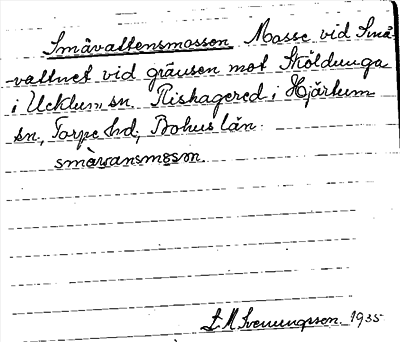 Småvattensmossen Mosse vid Små-
-vattnet vid gränsen mot Sköldunga
i Ucklum sn. Rishagered i Hjärtum
sn, Torpe hd, Bohus län.
småvansmåsn.
L M Svenungsson 1935